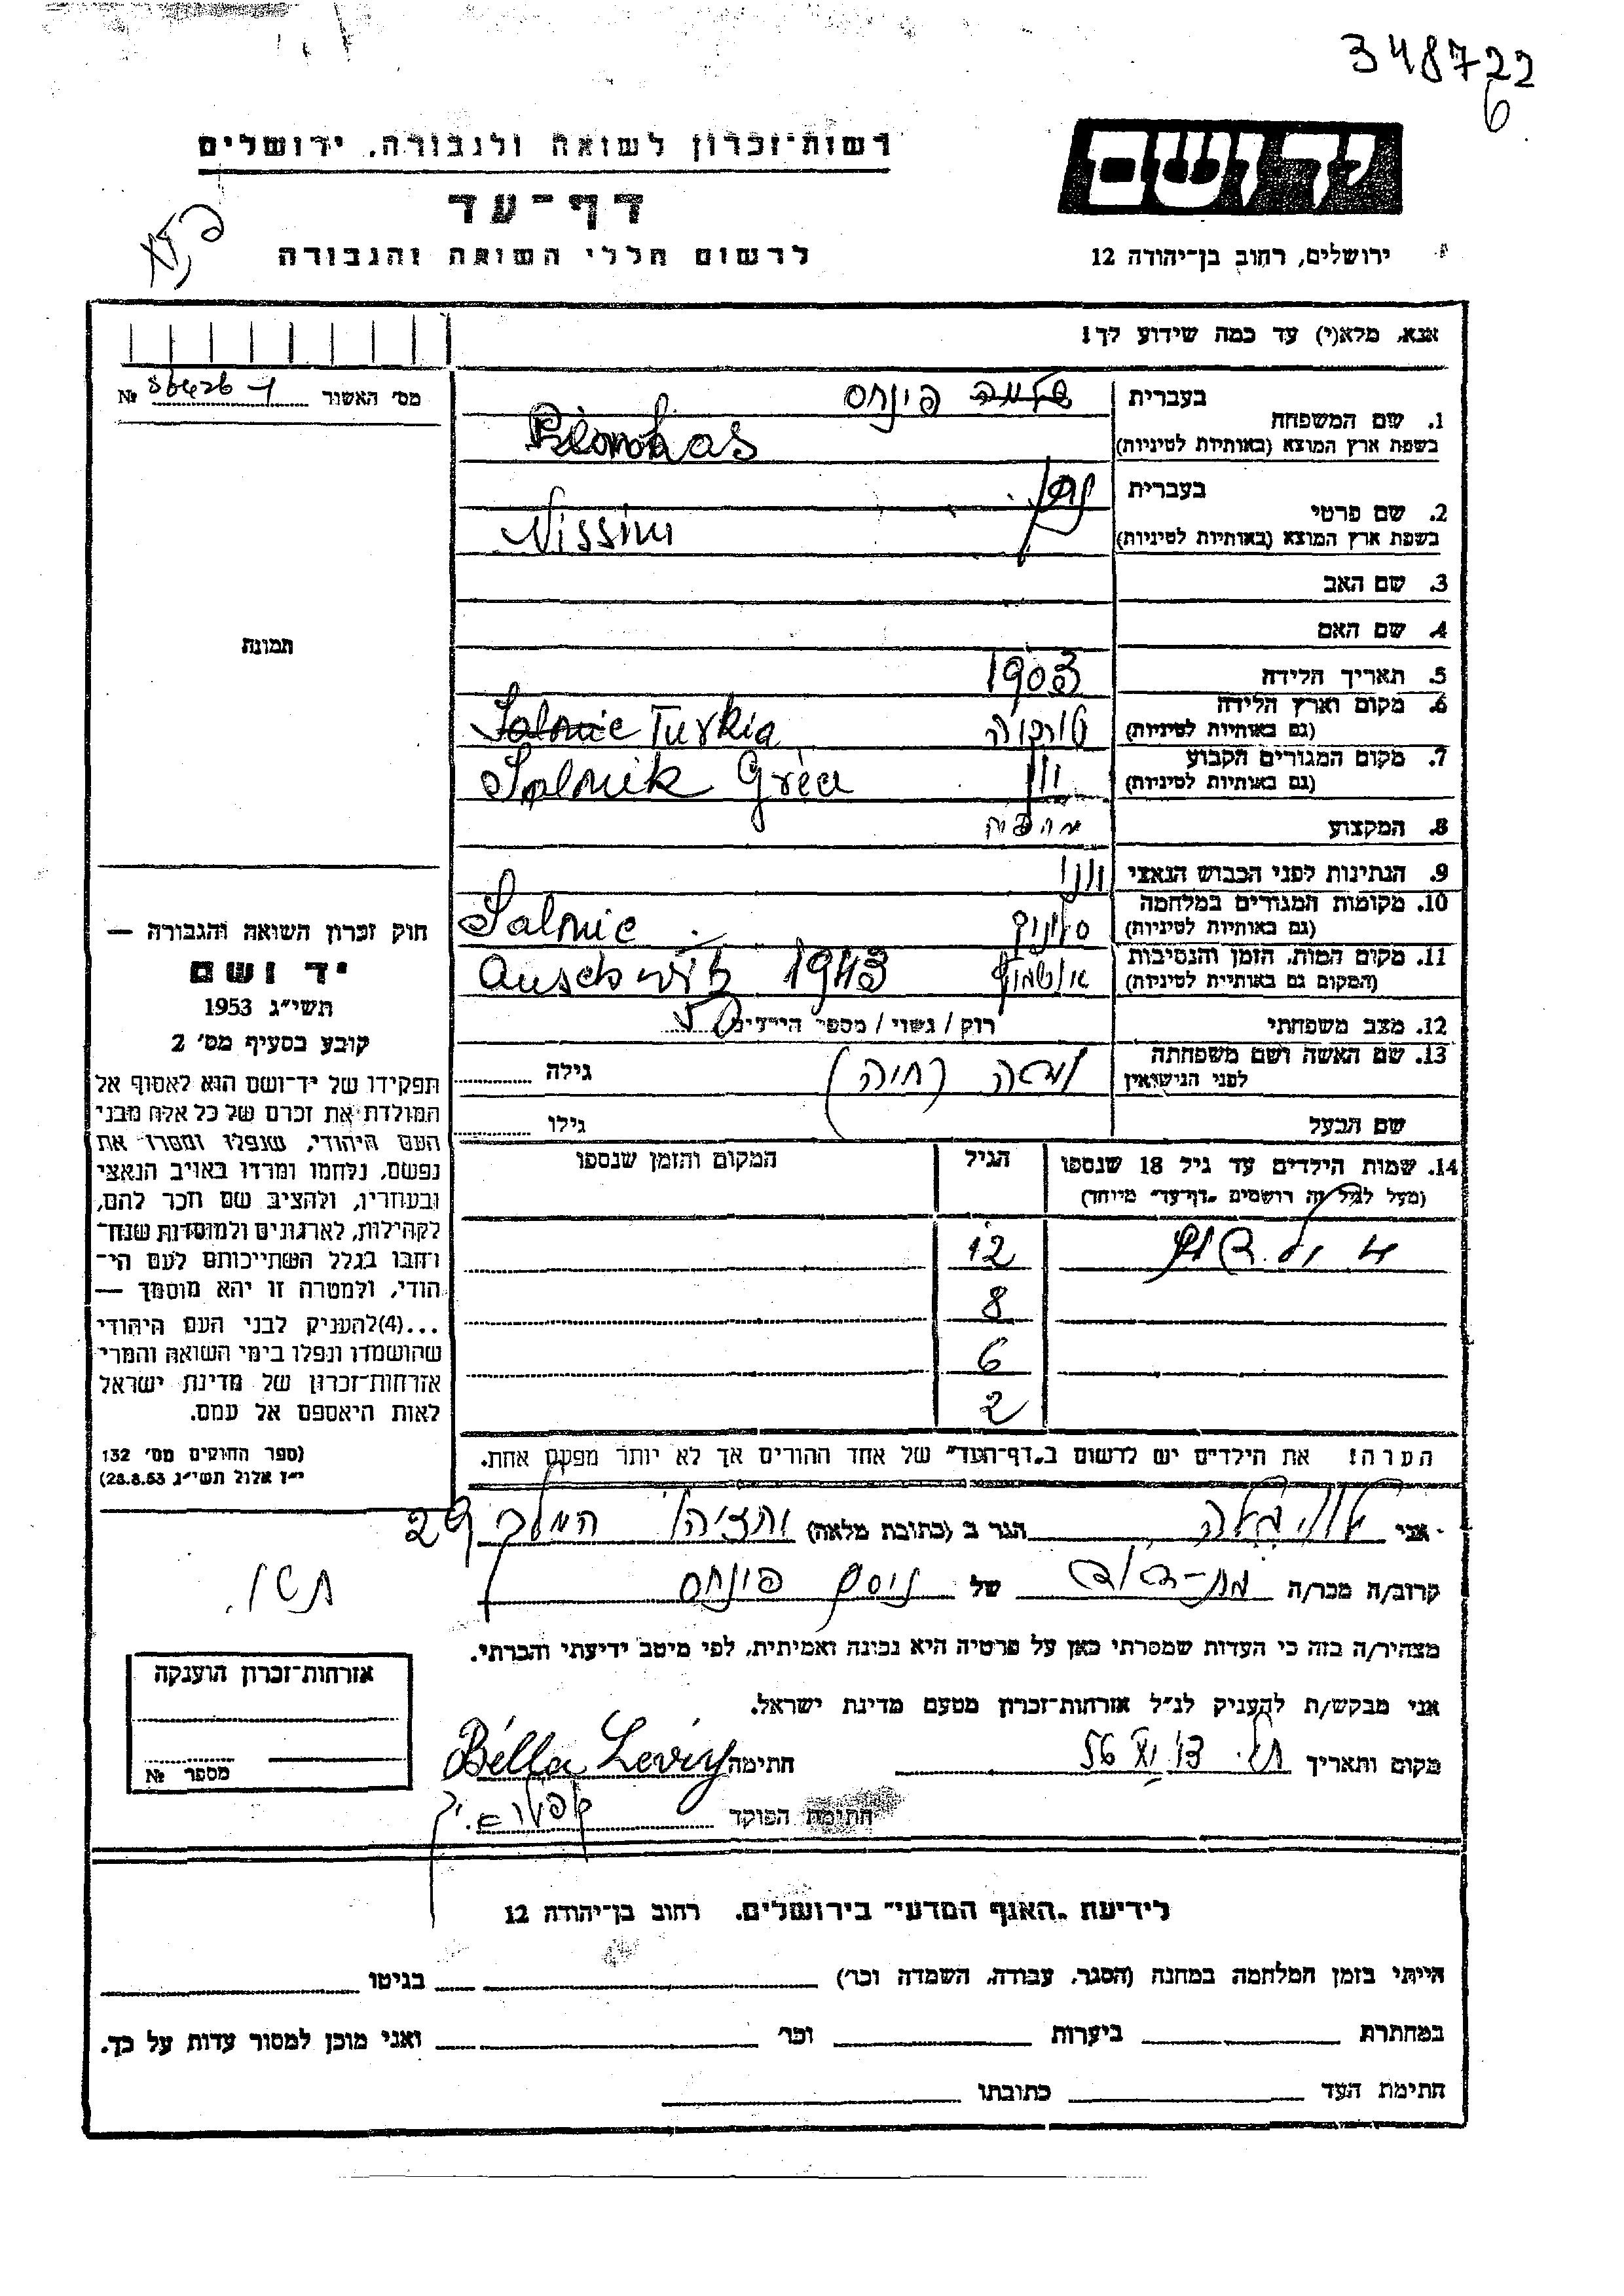 348722
6
יד ושם
רשות־זכרון לשואה ולגבורה, ירושלים
דף־עד
לרשום חללי השואה והגבורה
ירושלים, רחוב בן־יהודה 12
אנא, מלא(י) עד כמה שידוע לך!
מס׳ האשור № 56426
1. שם המשפחה
בעברית פינחס
בשפת ארץ המוצא (באותיות לטיניות)
2. שם פרטי
בעברית
בשפת ארץ המוצא (באותיות לטיניות) Nissim
3. שם האב
4. שם האם
תמונה
5. תאריך הלידה 1903
6. מקום וארץ הלידה
(גם באותיות לטיניות) טורכיה Salonic Turkia
7. מקום המגורים הקבוע
(גם באותיות לטיניות) יוון Salonik Grèce
8. המקצוע
9. הנתינות לפני הכבוש הנאצי יווני
10. מקומות המגורים במלחמה
(גם באותיות לטיניות) סלוניק Salonic
11. מקום המות, הזמן והנסיבות
(המקום גם באותיות לטיניות) אושוויץ 1943 Auschwitz
12. מצב משפחתי רוק / נשוי / מספר הילדים 5
13. שם האשה ושם משפחתה
לפני הנישואין גילה
שם הבעל גילו
14. שמות הילדים עד גיל 18 שנספו הגיל המקום והזמן שנספו
(מעל לגיל זה רושמים „דף־עד״ מיוחד)
12
8
6
2
הערה: את הילדים יש לרשום ב„דף־העד״ של אחד ההורים אך לא יותר מפעם אחת.
חוק זכרון השואה והגבורה —
יד ושם
תשי״ג 1953
קובע בסעיף מס׳ 2
תפקידו של יד־ושם הוא לאסוף אל
המולדת את זכרם של כל אלה מבני
העם היהודי, שנפלו ומסרו את
נפשם, נלחמו ומרדו באויב הנאצי
ובעוזריו, ולהציב שם וזכר להם,
לקהילות, לארגונים ולמוסדות שנח־
רבו בגלל השתייכותם לעם הי־
הודי, ולמטרה זו יהא מוסמך —
...(4)להעניק לבני העם היהודי
שהושמדו ונפלו בימי השואה והמרי
אזרחות־זכרון של מדינת ישראל
לאות היאספם אל עמם.
(ספר החוקים מס׳ 132
י״ז אלול תשי״ג 28.8.53)
אני לוי בלה הגר ב (כתובת מלאה) המלך 29
קרוב/ה מכר/ה בת-דוד של ניסים פינחס
מצהיר/ה בזה כי העדות שמסרתי כאן על פרטיה היא נכונה ואמיתית, לפי מיטב ידיעתי והכרתי.
אני מבקש/ת להעניק לנ״ל אזרחות־זכרון מטעם מדינת ישראל.
מקום ותאריך חתימה Bella Levi
חתימת הפוקד
אזרחות־זכרון הוענקה
מספר №
לידיעת „האגף המדעי״ בירושלים, רחוב בן־יהודה 12
הייתי בזמן המלחמה במחנה (הסגר, עבודה, השמדה וכו׳) בגיטו
במחתרת ביערות וכו׳ ואני מוכן למסור עדות על כך.
חתימת העד כתובתו